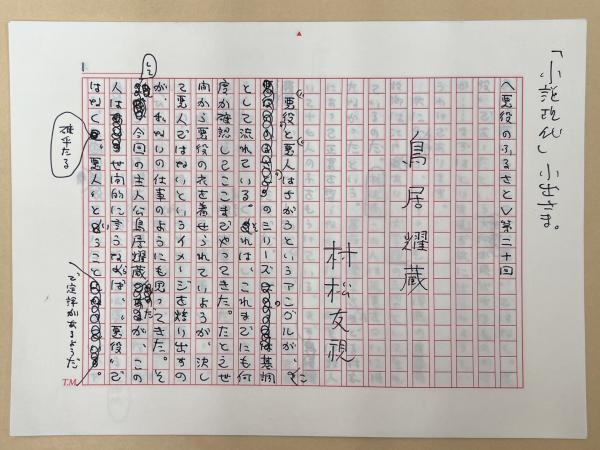 「小説現代」小出さま。
〈悪役のふるさと〉第二十回
鳥居耀蔵
村松友視
悪役と悪人はちがうというアングルが、こ
のシリーズ基調
として流れている。それは、これまでにも何
度か確認してここまでやってきた。たとえ世
間から悪役の衣を着せられていようが、決し
て悪人ではないというイメージを炙り出すの
の仕事のようにも思ってきた。そ
して
今回の主人公鳥居耀蔵だが、この
人は世間的に言うならば、〝悪役〟で
はなく、〝悪人〟ということ
確乎たる
で定評があるようだ
1
T.M.